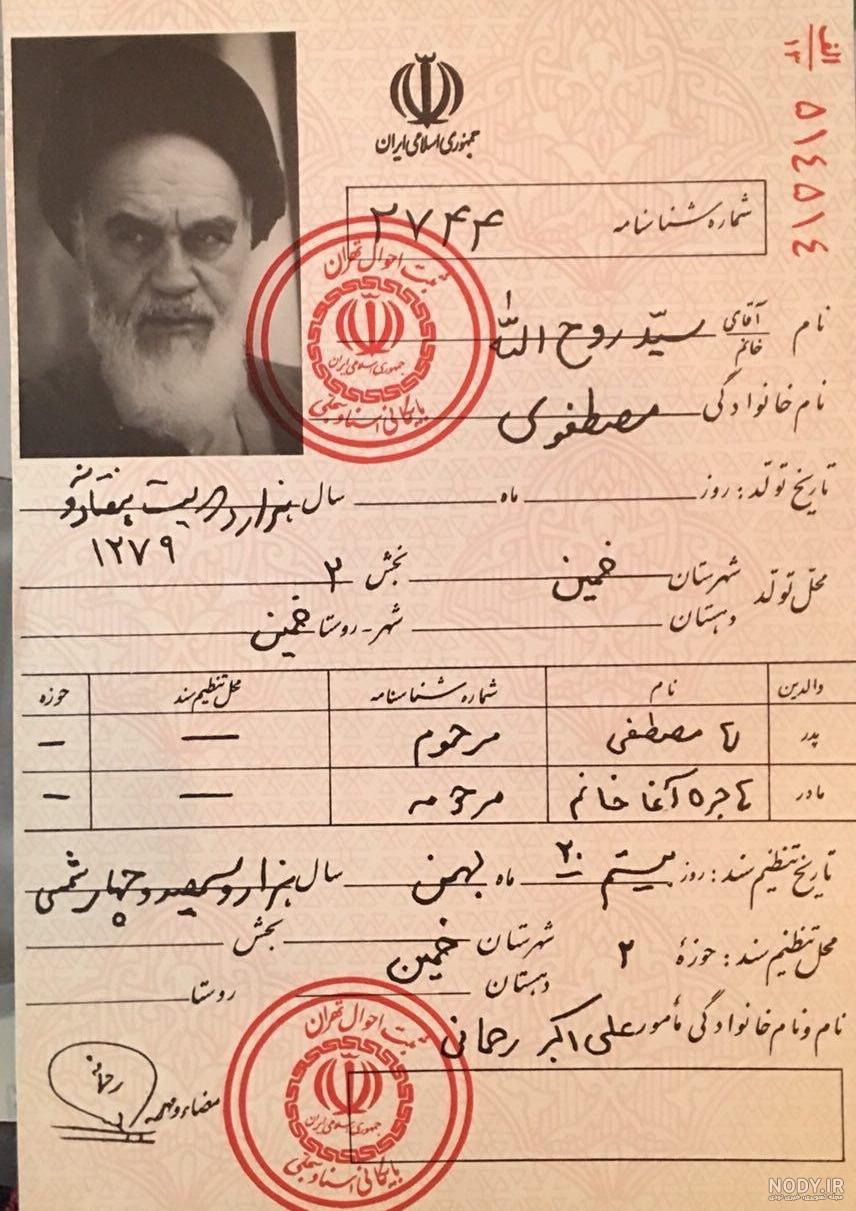 الف
۱۳
۵۱٤۵۱٤
جمهوری اسلامی ایران
شماره شناسنامه ۲۷۴۴
نام آقای خانم سیّد روح الله
نام خانوادگی مصطفوی
تاریخ تولد: روز ماه سال هزار و دویست هفتاد و نه
۱۲۷۹
محل تولد شهرستان خمین بخش ۲
دهستان شهر - روستا خمین
والدین نام شماره شناسنامه محل تنظیم سند حوزه
پدر مصطفی مرحوم — —
مادر هاجره آغا خانم مرحومه — —
تاریخ تنظیم سند: روز بیستم ۲۰ ماه بهمن سال هزار و سیصد و چهار شمسی
محل تنظیم سند: حوزهٔ ۲ شهرستان خمین بخش
دهستان روستا
نام و نام خانوادگی مأمور علی اکبر رحمانی
امضاء و مهر
ثبت احوال تهران
جمهوری اسلامی ایران
بایگانی اسناد سجلی
ثبت احوال تهران
جمهوری اسلامی ایران
بایگانی اسناد سجلی
NODY.IR